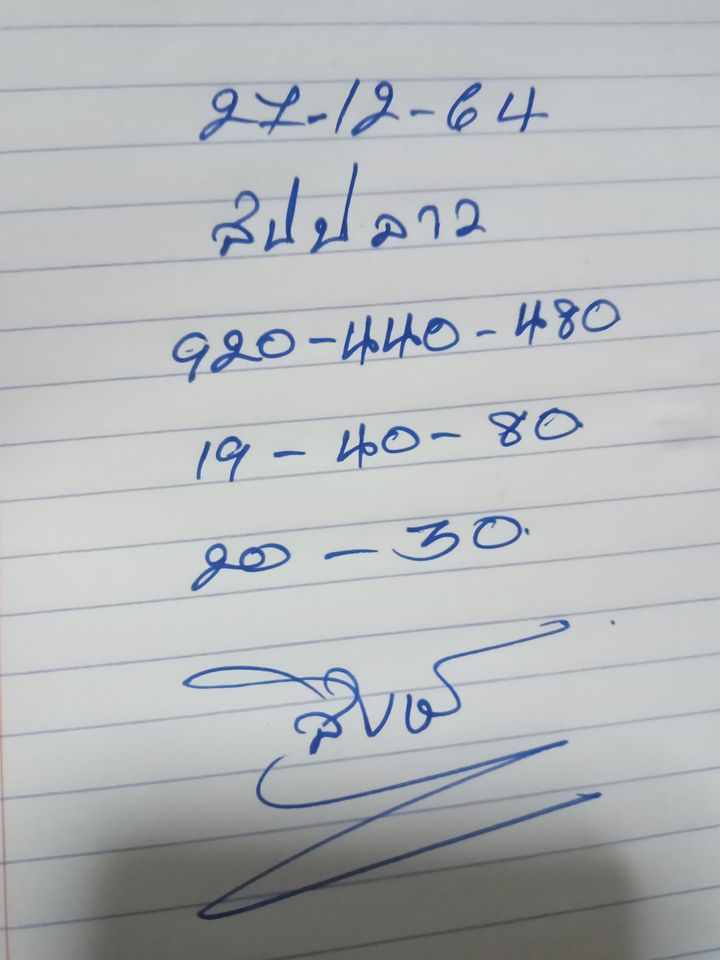 27-12-64
สปปลาว
920-440-480
19-40-80
20-30